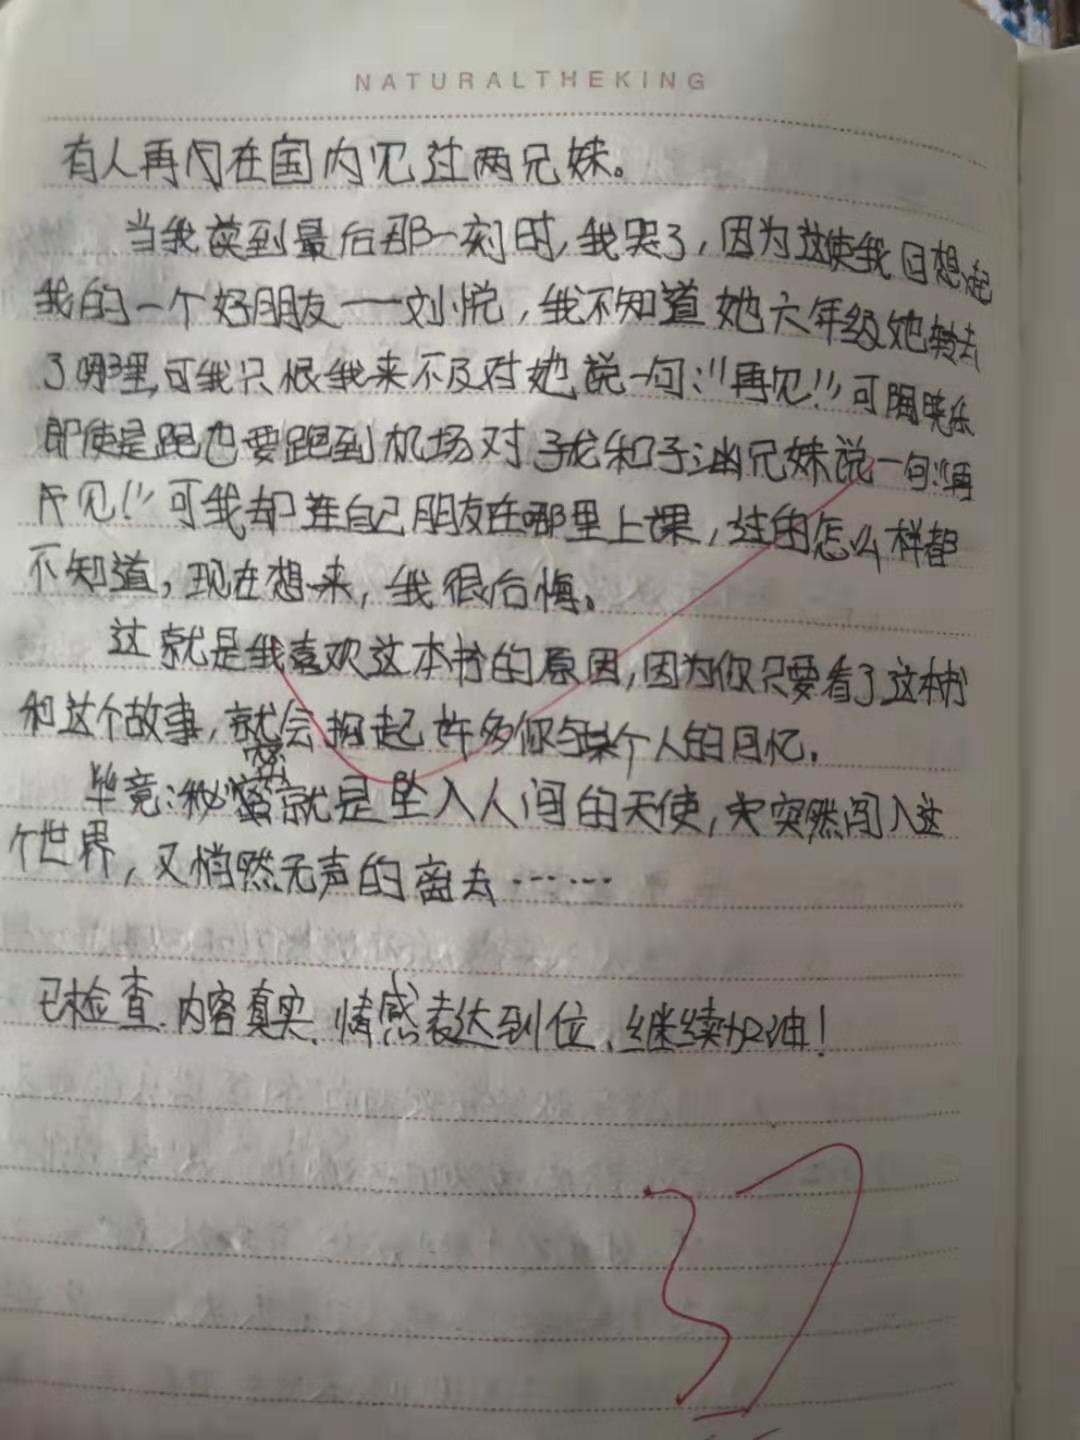 NATURALTHEKING
有人再闪在国内见过两兄妹。
当我读到最后那一刻时,我哭了,因为这使我回想起
我的一个好朋友——刘悦,我不知道她六年级她转去
了哪里,可我只恨我来不及对她说一句:"再见!"可周晓乐
即使是跑也要跑到机场对子龙和子幽兄妹说一句:"再
见!"可我却连自己朋友在哪里上课,过的怎么样都
不知道,现在想来,我很后悔。
这就是我喜欢这本书的原因,因为你只要看了这本书
和这个故事,就会勾起许多你与某个人的回忆。
毕竟:秘密就是坠入人间的天使,突然闯入这
个世界,又悄然无声的离去……
已检查.内容真实.情感表达到位.继续加油!
37